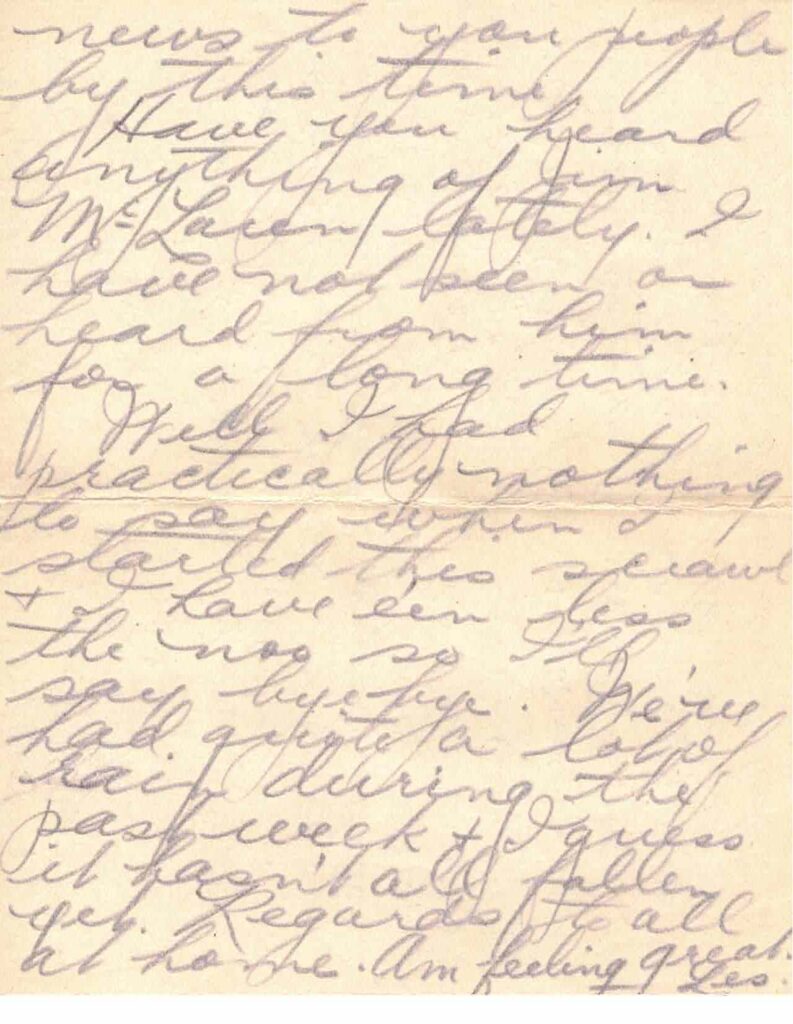 news to you people
by this time
Have you heard
anything of Jim
McLaren lately. I
have not seen or
heard from him
for a long time.
Well I had
practically nothing
to say when I
started this scrawl
+ I have e'en less
the noo so I'll
say bye bye. We've
had quite a lot of
rain during the
past week + I guess
it hasn't all fallen
yet. Regards to all
at home. Am feeling great.
Les.